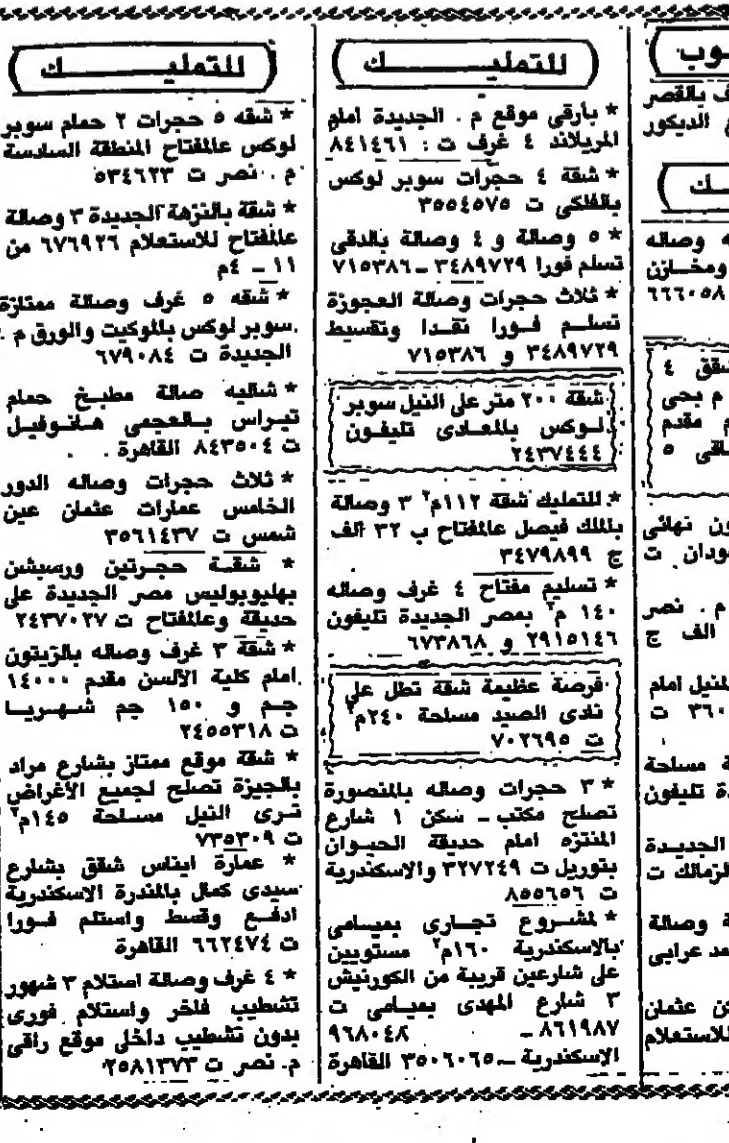 ـوب
ف بالقصر
الديكور
ـك
ه وصاله
ومخازن
٦٦٦٠٥٨
شقق ٤
م بحى
م مقدم
اقى ٥
ون نهائى
ودان ت
م . نصر
الف ج
لمنيل امام
٣٦٠ ت
ة مساحة
دة تليفون
الجديدة
لزمالك ت
ة وصالة
مد عرابى
ن عثمان
للاستعلام
للتمليـــــك
* بأرقى موقع م . الجديدة امام
المريلاند ٤ غرف ت : ٨٤١٤٦١
* شقة ٤ حجرات سوبر لوكس
بالفلكى ت ٣٥٥٤٥٧٥
* ٥ وصالة و ٤ وصالة بالدقى
تسلم فورا ٣٤٨٩٧٢٩ ــ ٧١٥٣٨٦
* ثلاث حجرات وصالة العجوزة
تسلم فورا نقدا وتقسيط
٣٤٨٩٧٢٩ و ٧١٥٣٨٦
شقة ٢٠٠ متر على النيل سوبر
لوكس بالمعادى تليفون
٢٤٣٧٤٤٤
* للتمليك شقة ١١٢م٢ ٣ وصالة
بالملك فيصل عالمفتاح ب ٣٢ الف
ج ٣٤٧٩٨٩٩
* تسليم مفتاح ٤ غرف وصاله
١٤٠ م٢ بمصر الجديدة تليفون
٢٩١٥١٤٦ و ٦٧٣٨٦٨
فرصة عظيمة شقة تطل على
نادى الصيد مساحة ٢٤٠م٢
ت ٧٠٢٦٩٥
* ٣ حجرات وصاله بالمنصورة
تصلح مكتب ــ سكن ١ شارع
المنتزه امام حديقة الحيوان
بتوريل ت ٣٢٧٢٤٩ والاسكندرية
ت ٨٥٥٦٥٦
* لمشروع تجارى بميامى
بالاسكندرية ١٦٠م٢ مستويين
على شارعين قريبة من الكورنيش
٣ شارع المهدى بميامى ت
٨٦١٩٨٧ ــ ٩٦٨٠٤٨
الإسكندرية ــ ٣٥٠٦٠٦٥ القاهرة
للتمليـــــك
* شقه ٥ حجرات ٢ حمام سوبر
لوكس عالمفتاح المنطقة السادسة
م . نصر ت ٥٣٤٦٢٣
* شقة بالنزهة الجديدة ٣ وصالة
عالمفتاح للاستعلام ٦٧٦٩٢٦ من
١١ ــ ٤م
* شقه ٥ غرف وصالة ممتازة
سوبر لوكس بالموكيت والورق م .
الجديدة ت ٦٧٩٠٨٤
* شاليه صالة مطبخ حمام
تيراس بالعجمى هانوفيل
ت ٨٤٣٥٠٤ القاهرة .
* ثلاث حجرات وصاله الدور
الخامس عمارات عثمان عين
شمس ت ٣٥٦١٤٣٧
* شقة حجرتين ورسبشن
بهليوبوليس مصر الجديدة على
حديقة وعالمفتاح ت ٢٤٣٧٠٢٧
* شقة ٣ غرف وصاله بالزيتون
امام كلية الألسن مقدم ١٤٠٠٠
جم و ١٥٠ جم شهريا
ت ٢٤٥٥٣١٨
* شقة موقع ممتاز بشارع مراد
بالجيزة تصلح لجميع الأغراض
ترى النيل مساحة ١٤٥م٢
ت ٧٣٥٣٠٩
* عمارة ايناس شقق بشارع
سيدى كمال بالمندرة الاسكندرية
ادفع وقسط واستلم فورا
ت ٦٦٢٤٧٤ القاهرة
* ٤ غرف وصالة استلام ٣ شهور
تشطيب فاخر واستلام فورى
بدون تشطيب داخلى موقع راقى
م. نصر ت ٢٥٨١٣٧٣